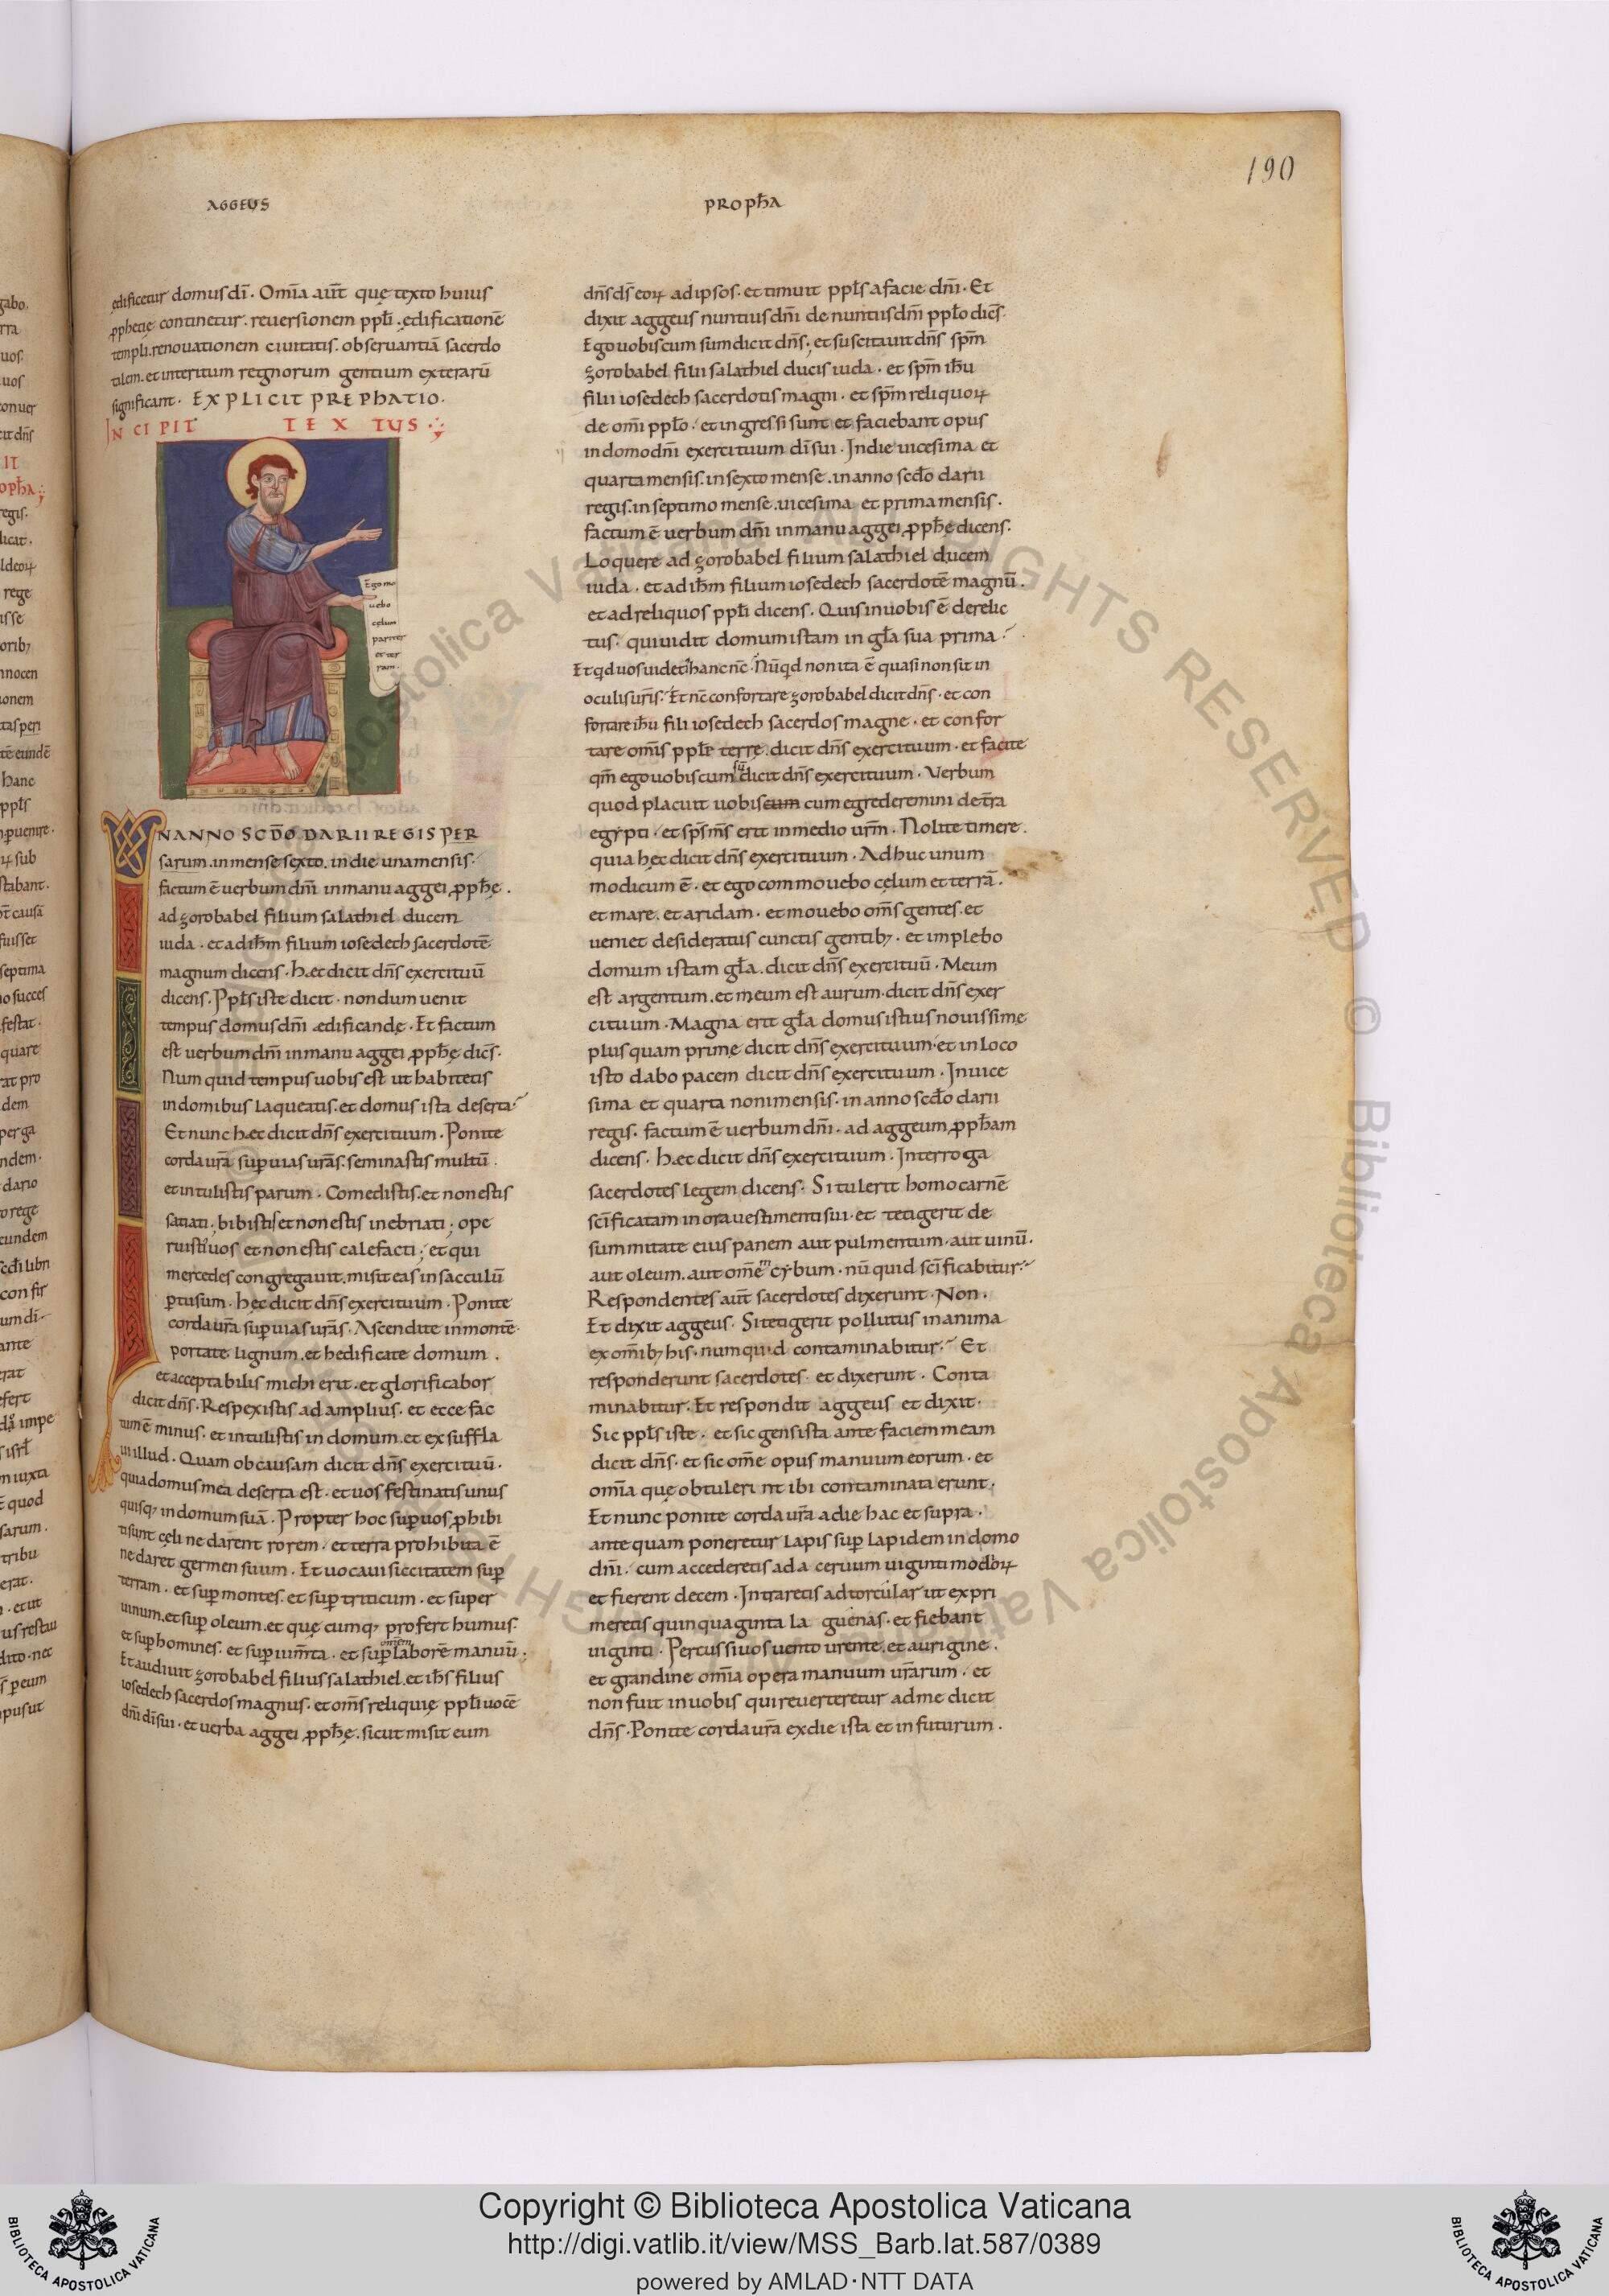 190
AGGEUS
PROPH̄A
ędificetur domus dī. Om̄ia aūt quę texto huius
ꝓphetię continetur. reuersionem ppłi. ędificationē
templi. renouationem ciuitatis. obseruantiā sacerdo
talem. et interitum regnorum gentium exterarū
significant. EXPLICIT PREPHATIO.
INCIPIT TEXTUS
Ego mo
uebo
celum
pariter
et ter
ram.
IN ANNO SCDO DARII REGIS PER
sarum. in mense sexto. in die una mensis.
factum ē uerbum dn̄i in manu aggei ꝓpħę.
ad zorobabel filium salathiel ducem
iuda. et ad ihm̄ filium iosedech sacerdotē
magnum dicens. hæc dicit dn̄s exercituū
dicens. Ppłs iste dicit. nondum uenit
tempus domus dn̄i ædificandę. Et factum
est uerbum dn̄i in manu aggei ꝓpħę dicēs.
Num quid tempus uobis est ut habitetis
in domibus laqueatis. et domus ista deserta.
Et nunc hæc dicit dn̄s exercituum. Ponite
corda ur̄a suꝑ uias ur̄as. seminastis multū.
et intulistis parum. Comedistis. et non estis
satiati; bibistis et non estis inebriati; ope
ruistis uos et non estis calefacti; et qui
mercedes congregauit. misit eas in sacculū
ꝑtusum. hęc dicit dn̄s exercituum. Ponite
corda ur̄a suꝑ uias ur̄as. Ascendite in montē.
portate lignum. et hedificate domum.
et acceptabilis michi erit. et glorificabor
dicit dn̄s. Respexistis ad amplius. et ecce fac
tum ē minus. et intulistis in domum. et exsuffla
ui illud. Quam ob causam dicit dn̄s exercituū.
quia domus mea deserta est. et uos festinatis unus
quisq; in domum suā. Propter hoc suꝑ uos ꝓhibi
ti sunt cęli ne darent rorem. et terra prohibita ē
ne daret germen suum. Et uocaui siccitatem suꝑ
terram. et suꝑ montes. et suꝑ triticum. et super
uinum. et suꝑ oleum. et quę cumq; profert humus.
et suꝑ homines. et suꝑ ium̄ta. et suꝑ omnem laborē manuū.
Et audiuit zorobabel filius salathiel. et ihs̄ filius
iosedech sacerdos magnus. et om̄s reliquię ppłi uocē
dn̄i dī sui. et uerba aggei ꝓpħę. sicut misit eum
dn̄s ds̄ eoꝝ ad ipsos. et timuit ppłs a facie dn̄i. Et
dixit aggeus nuntius dn̄i de nuntiis dn̄i ppło dicēs.
Ego uobiscum sum dicit dn̄s; et suscitauit dn̄s spm̄
zorobabel filii salathiel ducis iuda. et spm̄ ihū
filii iosedech sacerdotis magni. et spm̄ reliquoꝝ
de om̄i ppło. et ingressi sunt et faciebant opus
in domo dn̄i exercituum dī sui. In die uicesima et
quarta mensis. in sexto mense. in anno scđo darii
regis. in septimo mense. uicesima et prima mensis.
factum ē uerbum dn̄i in manu aggei ꝓpħę dicens.
Loquere ad zorobabel filium salathiel ducem
iuda. et ad ihm̄ filium iosedech sacerdotē magnū.
et ad reliquos ppłi dicens. Quis in uobis ē derelic
tus. qui uidit domum istam in gła sua prima.
Et qd uos uidetis hanc nc̄. Nūqd non ita ē quasi non sit in
oculis ur̄is. Et nc̄ confortare zorobabel dicit dn̄s. et con
fortare ihū fili iosedech sacerdos magne. et confor
tare om̄is pple terrę. dicit dn̄s exercituum. et facite
qm̄ ego uobiscum sū dicit dn̄s exercituum. Verbum
quod placuit uobiscum cum egrederemini de tr̄a
egypti. et sps̄ ms̄ erit in medio urm̄. Nolite timere.
quia hęc dicit dn̄s exercituum. Adhuc unum
modicum ē. et ego commouebo cęlum et terrā.
et mare. et aridam. et mouebo om̄s gentes. et
ueniet desideratus cunctis gentib;. et implebo
domum istam gła. dicit dn̄s exercituū. Meum
est argentum. et meum est aurum. dicit dn̄s exer
cituum. Magna erit gła domus istius nouissime
plus quam prime dicit dn̄s exercituum. et in loco
isto dabo pacem dicit dn̄s exercituum. In uice
sima et quarta noni mensis. in anno scđo darii
regis. factum ē uerbum dn̄i. ad aggeum ꝓpħam
dicens. hæc dicit dn̄s exercituum. Interroga
sacerdotes legem dicens. Si tulerit homo carnē
scīficatam in ora uestimenti sui. et tetigerit de
summitate eius panem aut pulmentum. aut uinū.
aut oleum. aut omem̄ cybum. nū quid scīficabitur.
Respondentes aūt sacerdotes dixerunt. Non.
Et dixit aggeus. Si tetigerit pollutus in anima
ex om̄ib; his. numquid contaminabitur. Et
responderunt sacerdotes. et dixerunt. Conta
minabitur. Et respondit aggeus et dixit.
Sic ppłs iste. et sic gens ista ante faciem meam
dicit dn̄s. et sic om̄e opus manuum eorum. et
om̄ia quę obtulerint ibi contaminata erunt.
Et nunc ponite corda ur̄a a die hac et supra.
ante quam poneretur lapis suꝑ lapidem in domo
dn̄i. cum accederetis ad aceruum uiginti modioꝝ
et fierent decem. Intraretis ad torcular ut expri
meretis quinquaginta laguenas. et fiebant
uiginti. Percussi uos uento urente. et aurigine.
et grandine om̄ia opera manuum ur̄arum. et
non fuit in uobis qui reuerteretur ad me dicit
dn̄s. Ponite corda ur̄a ex die ista et in futurum.
Copyright © Biblioteca Apostolica Vaticana
http://digi.vatlib.it/view/MSS_Barb.lat.587/0389
powered by AMLAD·NTT DATA
BIBLIOTECA APOSTOLICA VATICANA
BIBLIOTECA APOSTOLICA VATICANA